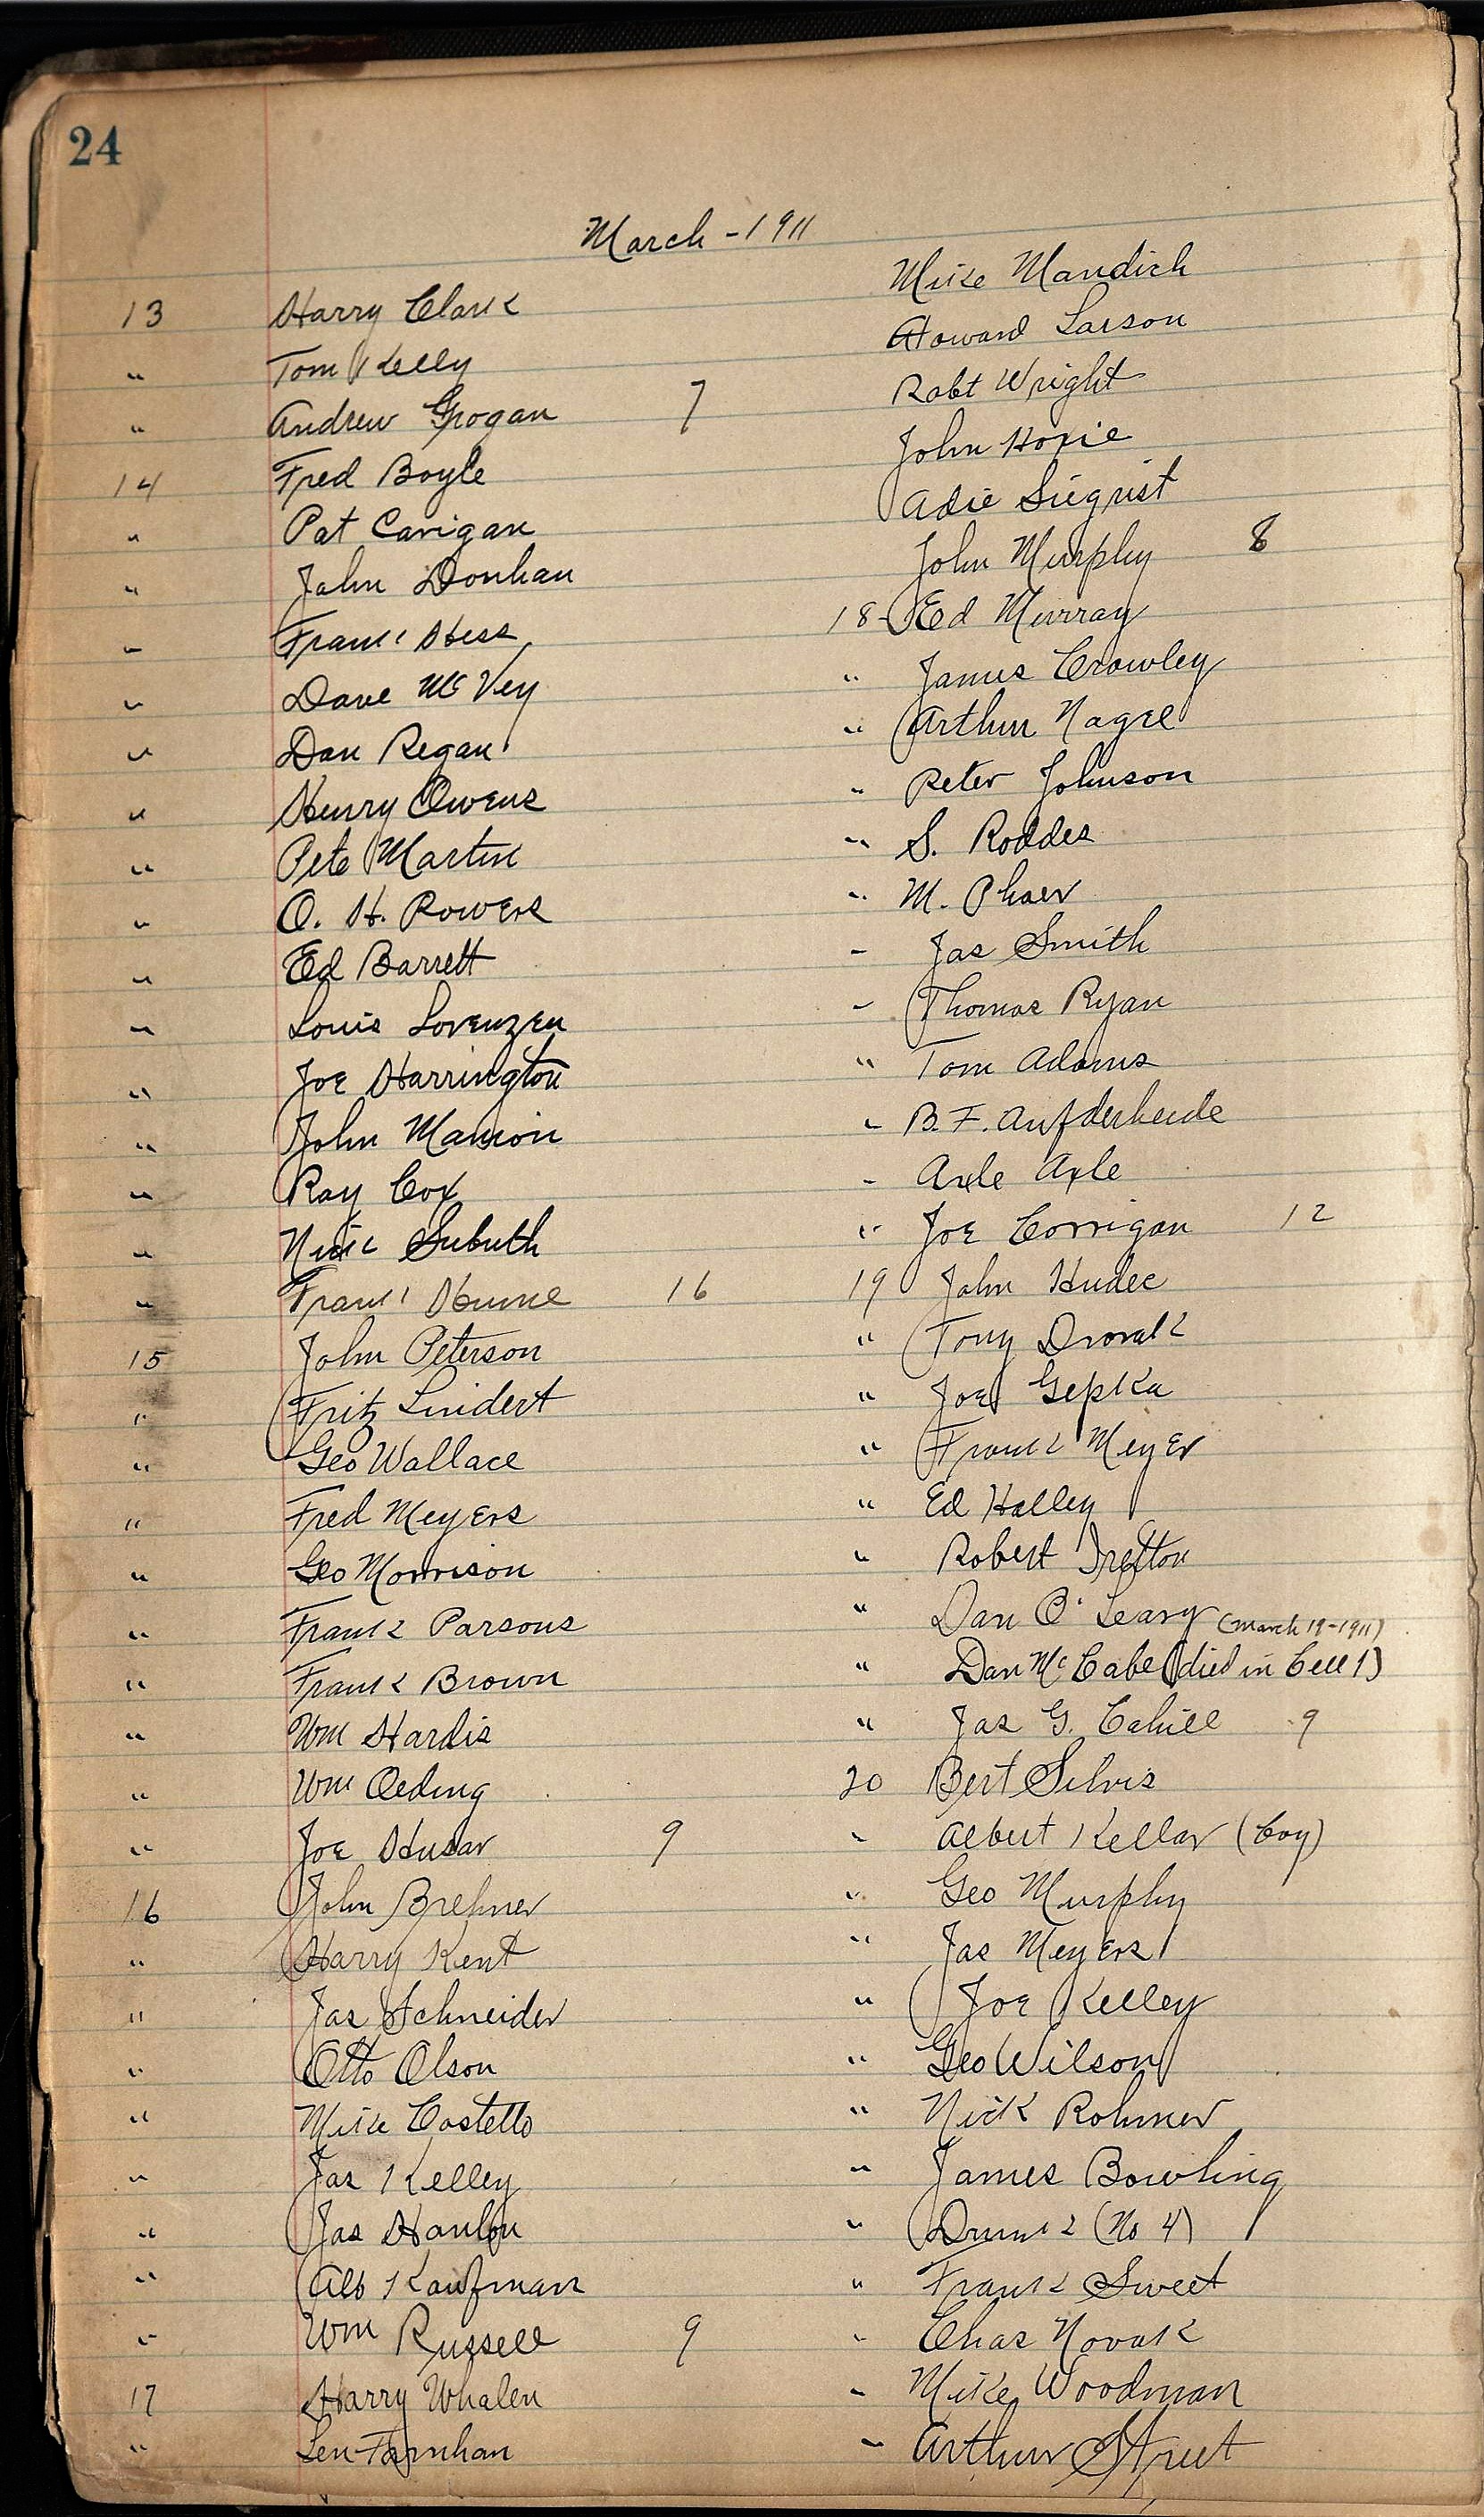 24
March - 1911
13 Harry Clark
" Tom Kelly
" Andrew Grogan 7
14 Fred Boyle
" Pat Carigan
" John Donhan
" Frank Hess
" Dave McVey
" Dan Regan
" Henry Owens
" Pete Martin
" O. H. Rowers
" Ed Barrett
" Louis Lorenzen
" Joe Harrington
" John Manion
" Ray Cox
" Nick Subuth
" Frank Hume 16
15 John Peterson
" Fritz Lindert
" Geo Wallace
" Fred Meyers
" Geo Morrison
" Frank Parsons
" Frank Brown
" Wm Hardis
" Wm Oeding
" Joe Husar 9
16 John Brehner
" Harry Kent
" Jas Schneider
" Otto Olson
" Mike Costello
" Jas Kelley
" Jas Hanlon
" Alb Kaufman
" Wm Russell 9
17 Harry Whalen
" Len Farnhan
Mike Mandich
Howard Larson
Robt Wright
John Hoxie
Adie Siegrist
John Murphy 8
18 - Ed Murray
" James Crowley
" Arthur Nagel
" Peter Johnson
" S. Roddes
" M. Phaer
" Jas Smith
" Thomas Ryan
" Tom Adams
" B. F. Aufderheide
" Axle Axle
" Joe Corrigan 12
19 John Hudec
" Tony Dvorak
" Joe Gepka
" Frank Meyer
" Ed Halley
" Robert
" Dan O'Leary (March 19-1911)
" Dan McCabe (died in Cell 1)
" Jas G. Cahill 9
20 Bert Silvis
" Albert Kellar (boy)
" Geo Murphy
" Jas Meyers
" Joe Kelley
" Geo Wilson
" Nick Rohmer
" James Bowling
" Drunk (No 4)
" Frank Sweet
" Chas Novak
" Mike Woodman
" Arthur Street